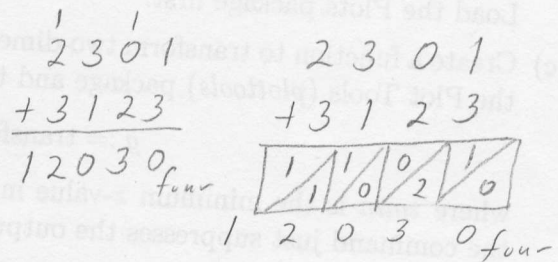 1 1
2 3 0 1
+ 3 1 2 3
1 2 0 3 0 four
2 3 0 1
+ 3 1 2 3
1 1 0 1
1 0 2 0
1 2 0 3 0 four